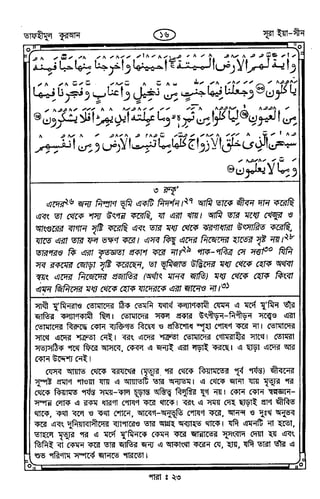 তাফহীমুল কুরআন
১৬
সূরা ইয়া-সীন
وَاٰيَةٌ لَّهُمُ الْاَرْضُ الْمَيْتَةُ ۚ اَحْيَيْنٰهَا وَاَخْرَجْنَا مِنْهَا حَبًّا فَمِنْهُ
يَاْكُلُوْنَ ۝ وَجَعَلْنَا فِيْهَا جَنّٰتٍ مِّنْ نَّخِيْلٍ وَّاَعْنَابٍ وَّفَجَّرْنَا فِيْهَا
مِنَ الْعُيُوْنِ ۝ لِيَاْكُلُوْا مِنْ ثَمَرِهٖ ۙ وَمَا عَمِلَتْهُ اَيْدِيْهِمْ ؕ اَفَلَا يَشْكُرُوْنَ ۝
سُبْحٰنَ الَّذِيْ خَلَقَ الْاَزْوَاجَ كُلَّهَا مِمَّا تُنْۢبِتُ الْاَرْضُ وَمِنْ اَنْفُسِهِمْ
وَمِمَّا لَا يَعْلَمُوْنَ ۝
৩ রুকূ'
এদের২৬ জন্য নিষ্প্রাণ ভূমি একটি নিদর্শন।২৭ আমি তাকে জীবন দান করেছি
এবং তা থেকে শস্য উৎপন্ন করেছি, যা এরা খায়। আমি তার মধ্যে খেজুর ও
আংগুরের বাগান সৃষ্টি করেছি এবং তার মধ্য থেকে ঝরণাধারা উৎসারিত করেছি,
যাতে এরা তার ফল ভক্ষণ করে। এসব কিছু এদের নিজেদের হাতের সৃষ্ট নয়।২৮
তারপরও কি এরা কৃতজ্ঞতা প্রকাশ করে না।২৯ পাক-পবিত্র সে সত্তা৩০ যিনি
সব রকমের জোড়া সৃষ্টি করেছেন, তা ভূমিজাত উদ্ভিদের মধ্য থেকে হোক অথবা
স্বয়ং এদের নিজেদের প্রজাতির (অর্থাৎ মানব জাতি) মধ্য থেকে হোক কিংবা
এমন জিনিসের মধ্য থেকে হোক যাদেরকে এরা জানেও না।৩১
সাথী মু'মিনরাও তোমাদের ঠিক তেমনি যথার্থ কল্যাণকামী যেমন এ মর্দে মু'মিন তাঁর
জাতির কল্যাণকামী ছিল। তোমাদের সকল প্রকার উৎপীড়ন-নিপীড়ন সত্ত্বেও এরা
তোমাদের বিরুদ্ধে কোন ব্যক্তিগত বিদ্বেষ ও প্রতিশোধ স্পৃহা পোষণ করে না। তোমাদের
সাথে এদের শত্রুতা নেই। বরং এদের শত্রুতা তোমাদের গোমরাহীর সাথে। তোমরা
সত্যসঠিক পথে ফিরে আসবে, কেবল এ জন্যই এরা লড়াই করছে। এ ছাড়া এদের আর
কোন উদ্দেশ্য নেই।
যেসব আয়াত থেকে বরযখের (মৃত্যুর পর থেকে কিয়ামতের পূর্ব পর্যন্ত) জীবনের
সুস্পষ্ট প্রমাণ পাওয়া যায় এ আয়াতটি তার অন্যতম। এ থেকে জানা যায় মৃত্যুর পর
থেকে কিয়ামত পর্যন্ত সময়-কাল চূড়ান্ত অস্তিত্ব বিলুপ্তির যুগ নয়।
থাকে, কথা বলে ও কথা শোনে, আবেগ-অনুভূতি পোষণ করে, আনন্দ ও দুঃখ অনুভব
করে এবং দুনিয়াবাসীদের ব্যাপারেও তার আগ্রহ অব্যাহত থাকে। যদি এমনটি না হতো,
তাহলে মৃত্যুর পর এ মর্দে মু'মিনকে কেমন করে জান্নাতের সুসংবাদ দেয়া হয় এবং
তিনিই বা কেমন করে তার জাতির জন্য এ আকাংখা করেন যে, হায়, যদি তারা তাঁর এ
শুভ পরিণাম সম্পর্কে জানতে পারতো।
পারা : ২৩